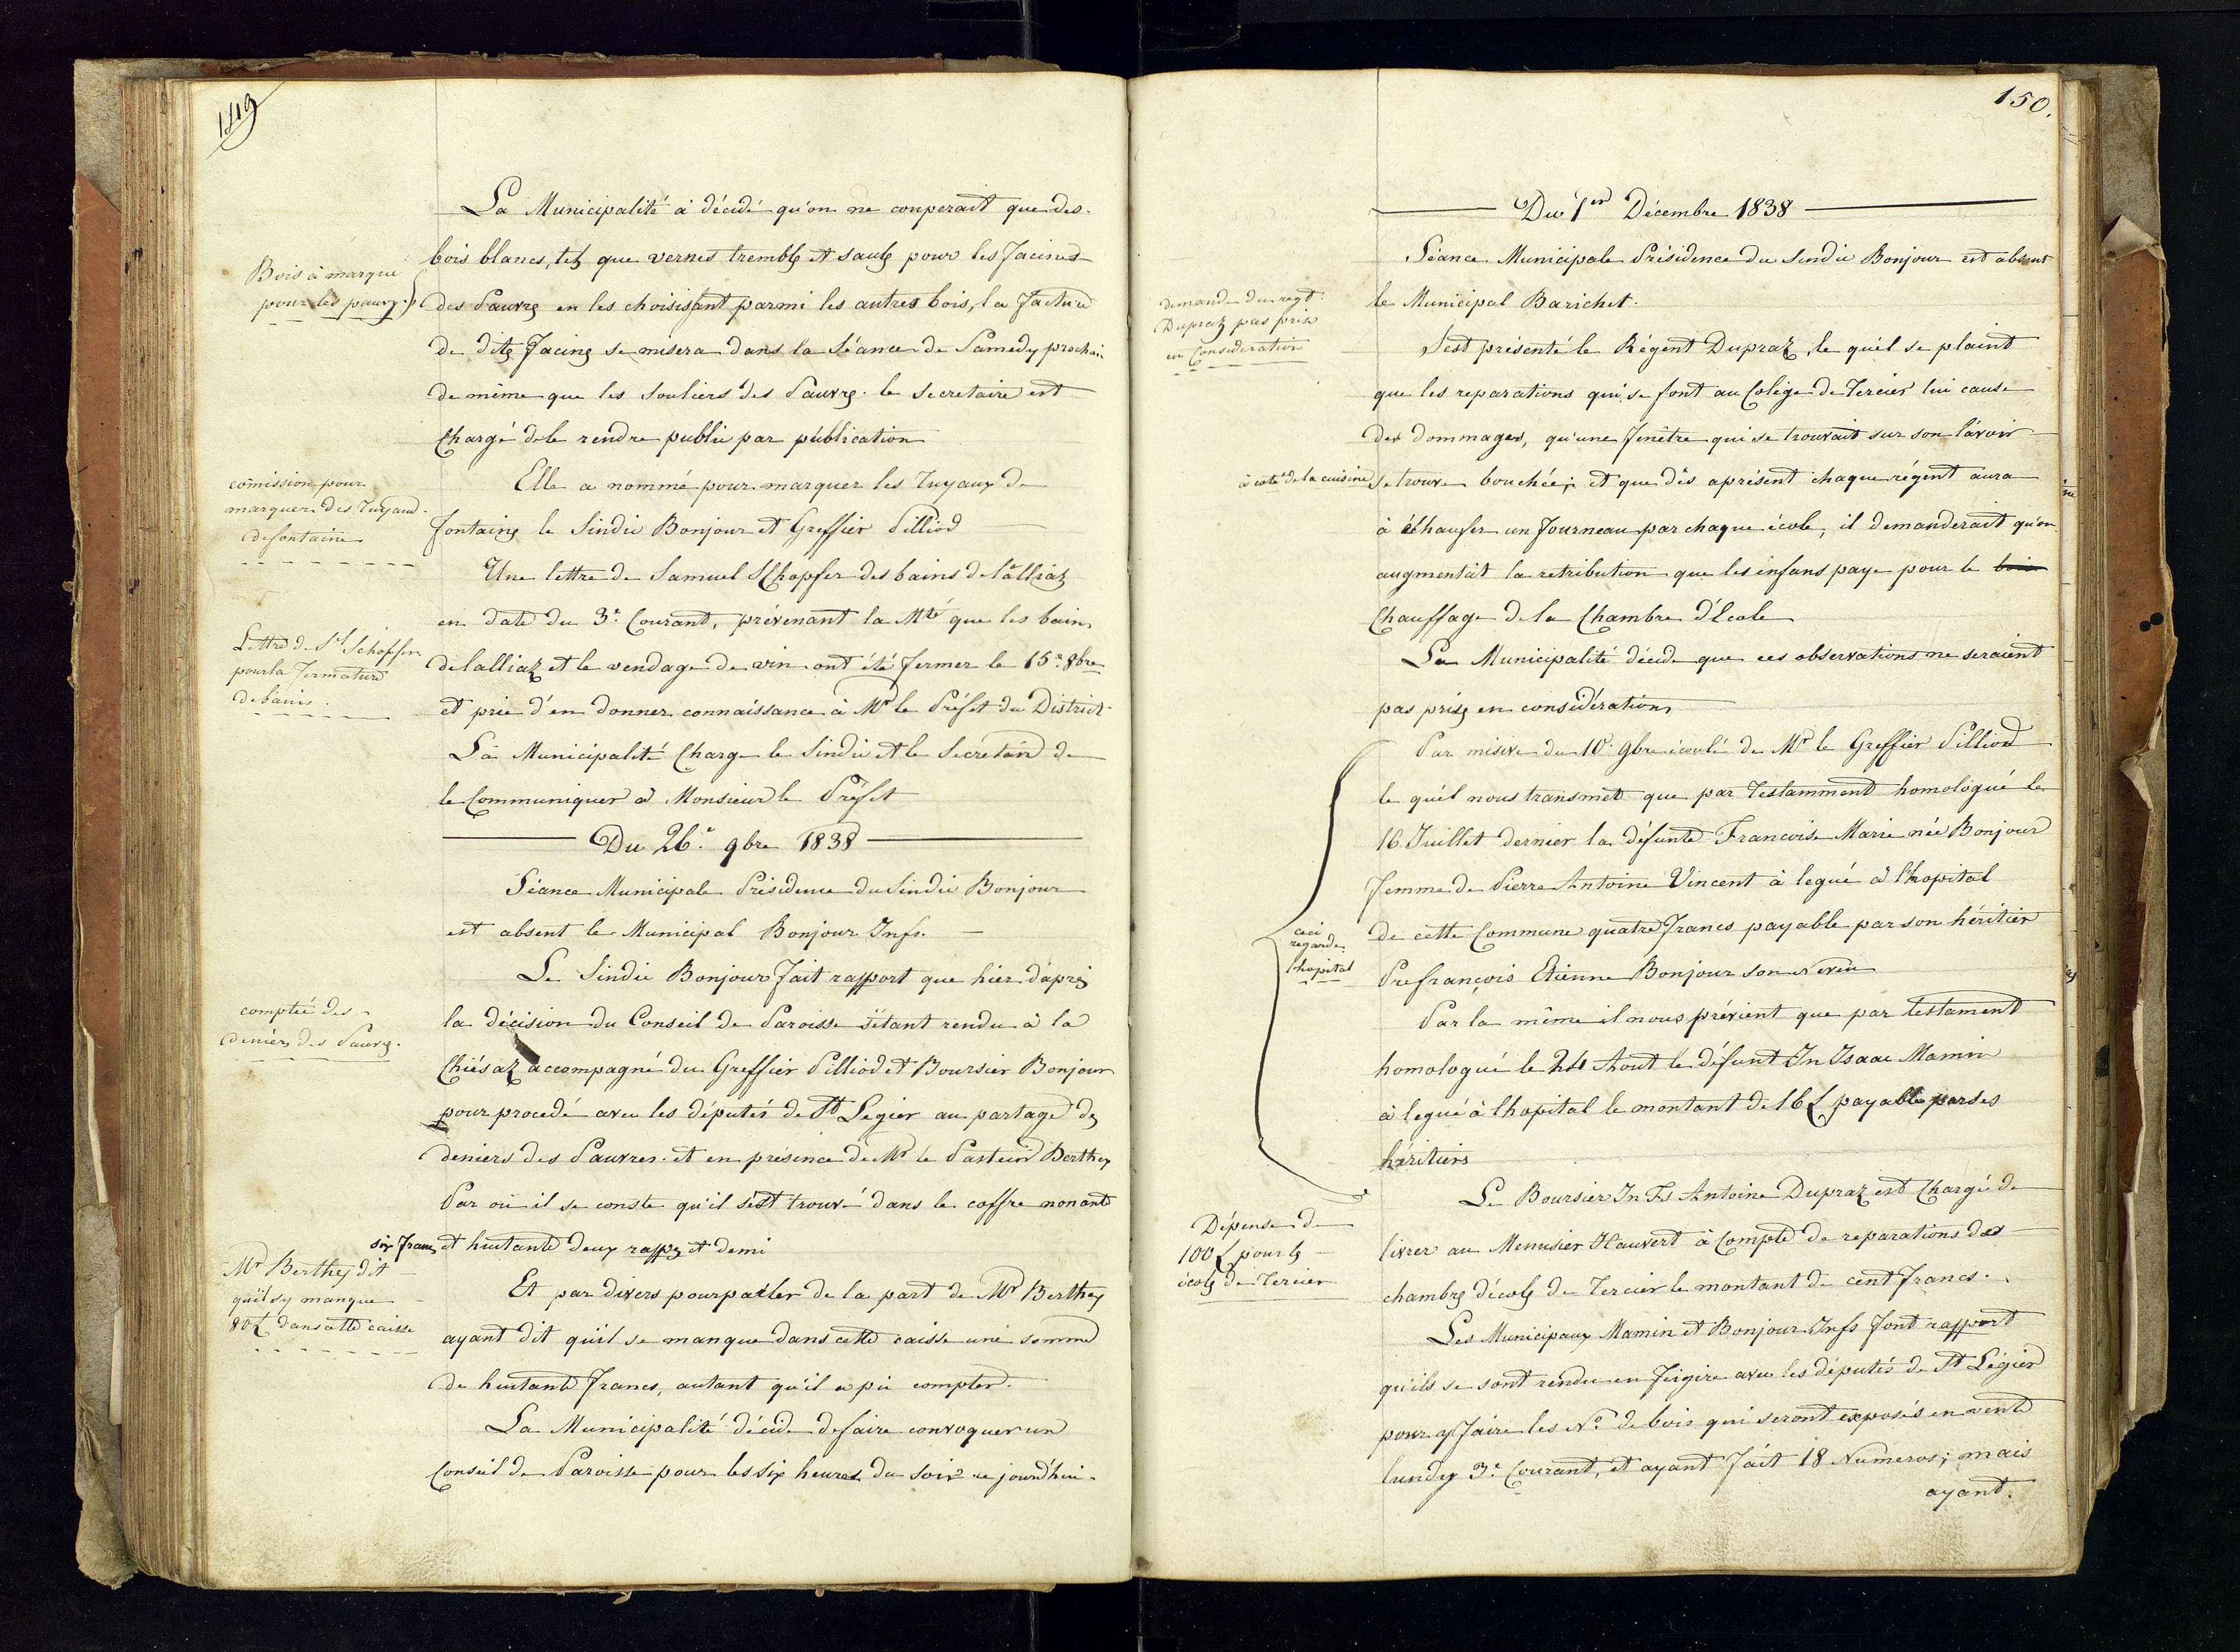 149
La Municipalité à décidé qu'on ne couperait que des
bois blancs, tels que vernes trembles et saules pour les facines
Bois à marque
pour les pauvres
des Pauvres en les choisissant parmi les autres bois, la facture
de dites facines se misera dans la Séance de Samedy prochain
de même que les Souliers des Pauvres. le Secretaire est
Chargé de le rendre public par publication
comission pour
marquer des Tuyaux
de fontaine
Elle a nommé pour marquer les Tuyaux de
fontaines le Sindic Bonjour et Greffier Pilliod
Une lettre de Samuel Schopfer des bains de l'alliaz
en date du 3e Courant, prévenant la Mté que les bains
Lettre de Sl Schopfer
pour la fermature
de bains.
de lalliaz et le vendage de vin ont été fermer le 15e 8bre
et prie d'en donner connaissance à Mr le Préfet du District
La Municipalité Charge le Sindic et le Secretaire de
le Communiquer à Monsieur le Préfet
Du 26e 9bre 1838
Séance Municipale Présidence du Sindic Bonjour
est absent le Municipal Bonjour Infs.
Le Sindic Bonjour fait rapport que hier d'après
comptée des
deniers des Pauvres.
la décision du Conseil de Paroisse s'étant rendu à la
Chiésaz accompagné du Greffier Pilliod et Boursier Bonjour
pour procedé avec les députés de St Legier au partage des
deniers des Pauvres. et en présence de Mr le Pasteur Berthey
Par où il se conste qu'il s'est trouvé dans le coffre nonante
six francs et huitante deux rappes et demi
Mr Berthey dit
qu'il sy manque
80 L dans cette caisse
Et par divers pourparler de la part de Mr Berthey
ayant dit qu'il se manque dans cette caisse une somme
de huitante francs, autant qu'il a pu compter.
La Municipalité décide de faire convoquer un
Conseil de Paroisse pour les six heures du soir ce jourd'hui.
150.
Du 1er Décembre 1838
Séance Municipale Présidence du Sindic Bonjour est absent
le Municipal Barichet.
demande du regt.
Dupraz pas prise
en Consideration
S'est présenté le Régent Dupraz, le quel se plaint
que les reparations qui se font au Colège de Tercier lui cause
des dommages, qu'une fenêtre qui se trouvait sur son lavoir
à coté de la cuisine se trouve bouchée; et que dès aprésent chaque régent aura
à échaufer un fourneau par chaque école, il demanderait qu'on
augmentat la retribution que les enfans paye pour le bois
Chauffage de la Chambre d'Ecole
La Municipalité décide que ces observations ne seraient
pas prises en considérations
Par misive du 10e 9bre écoulé de Mr le Greffier Pilliod
le quel nous transmet que par Testamment homologué le
16 Juillet dernier la défunte Francoise Marie née Bonjour
femme de Pierre Antoine Vincent à legué à l'hopital
ceci
regarde
l'hopital
de cette Commune quatre francs payable par son héritier
Prefrançois Etienne Bonjour son neveu
Par la même il nous prévient que par testament
homologué le 24 Aout le défunt Jn Isaac Mamin
à legué à l'hopital le montant de 16 L payable par ses
héritiers
Le Boursier Jn Fs Antoine Dupraz est Chargé de
Dépense de
100 L pour les
écoles de Tercier
livrer au Menusier Hauvert à Compte de reparations des
chambres d'écoles de Tercier le montant de cent francs.
Les Municipaux Mamin et Bonjour Infs font rapport
qu'ils se sont rendu en Feigire avec les députés de St Légier
pour y faire les No de bois qui seront exposés en vente
lundy 3e Courant, et ayant fait 18 Numeros; mais
ayant.